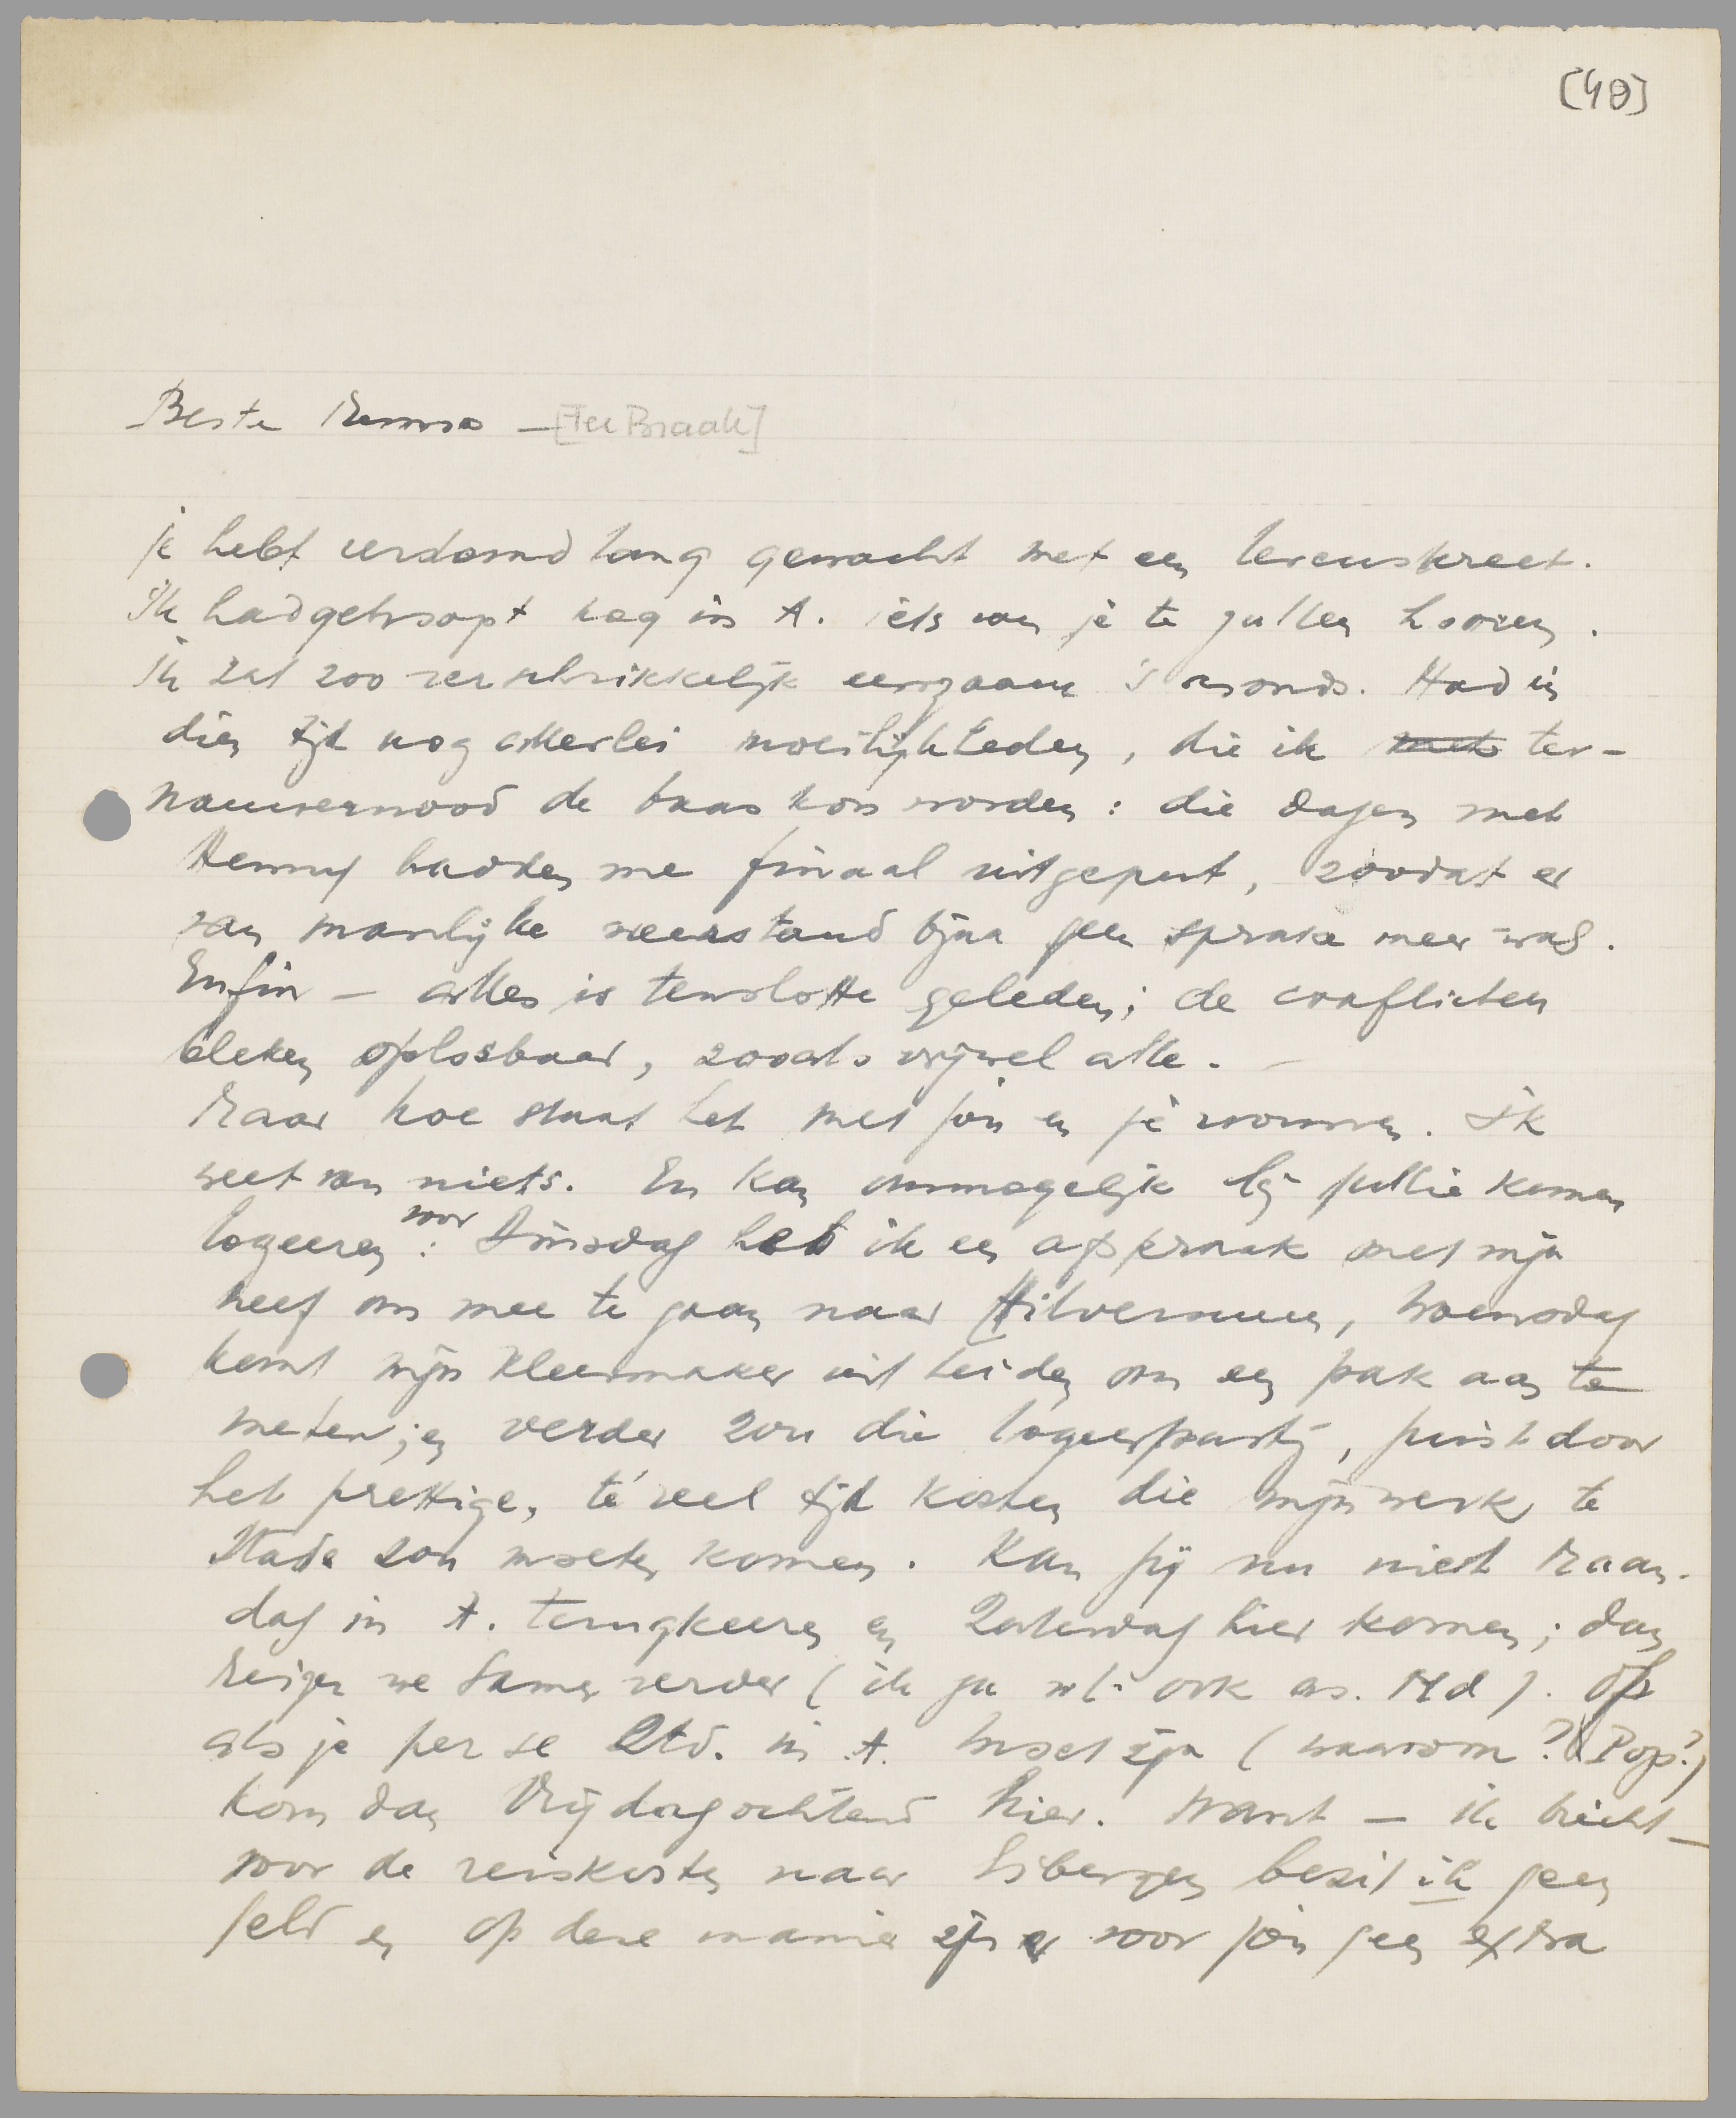 [40]
Beste Menno — [Ter Braak]
je hebt verdomd lang gewacht met een levenskreet.
Ik had gehoopt nog in A. iets van je te zullen hooren.
Ik zat zoo verschrikkelijk eenzaam 's avonds. Had in
dien tijd nog allerlei moeilijkheden, die ik ter-
nauwernood de baas kon worden: die dagen met
Henny hadden me finaal uitgeput, zoodat er
van manlijke weerstand bijna geen sprake meer was.
Enfin — alles is tenslotte geleden; de conflicten
bleken oplosbaar, zooals vrijwel alle. —
Maar hoe staat het met jou en je vrouwen. Ik
weet van niets. En kan onmogelijk bij jullie komen
logeeren: voor Dinsdag heb ik een afspraak met mijn
neef om mee te gaan naar Hilversum, Woensdag
komt mijn kleermaker uit Leiden om een pak aan te
meten; en verder zou die logeerpartij, juist door
het prettige, té veel tijd kosten die mijn werk te
stade zou moeten komen. Kan jij nu niet Maan-
dag in A. terugkeeren en Zaterdag hier komen; dan
reizen we samen verder (ik ga nl. ook as. Md). Of
als je per se Ztd. in A. moet zijn (waarom? Pop?)
kom dan Vrijdagochtend hier. Want — ik biecht —
voor de reiskosten naar Eibergen bezit ik geen
geld en op deze manier zijn er voor jou geen extra